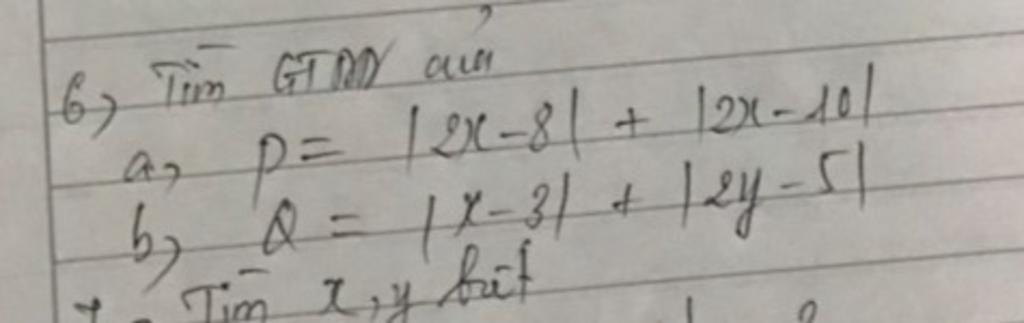 6, Tìm GTNN của
a, P = |2x-8| + |2x-10|
b, Q = |x-3| + |2y-5|
Tìm x, y biết